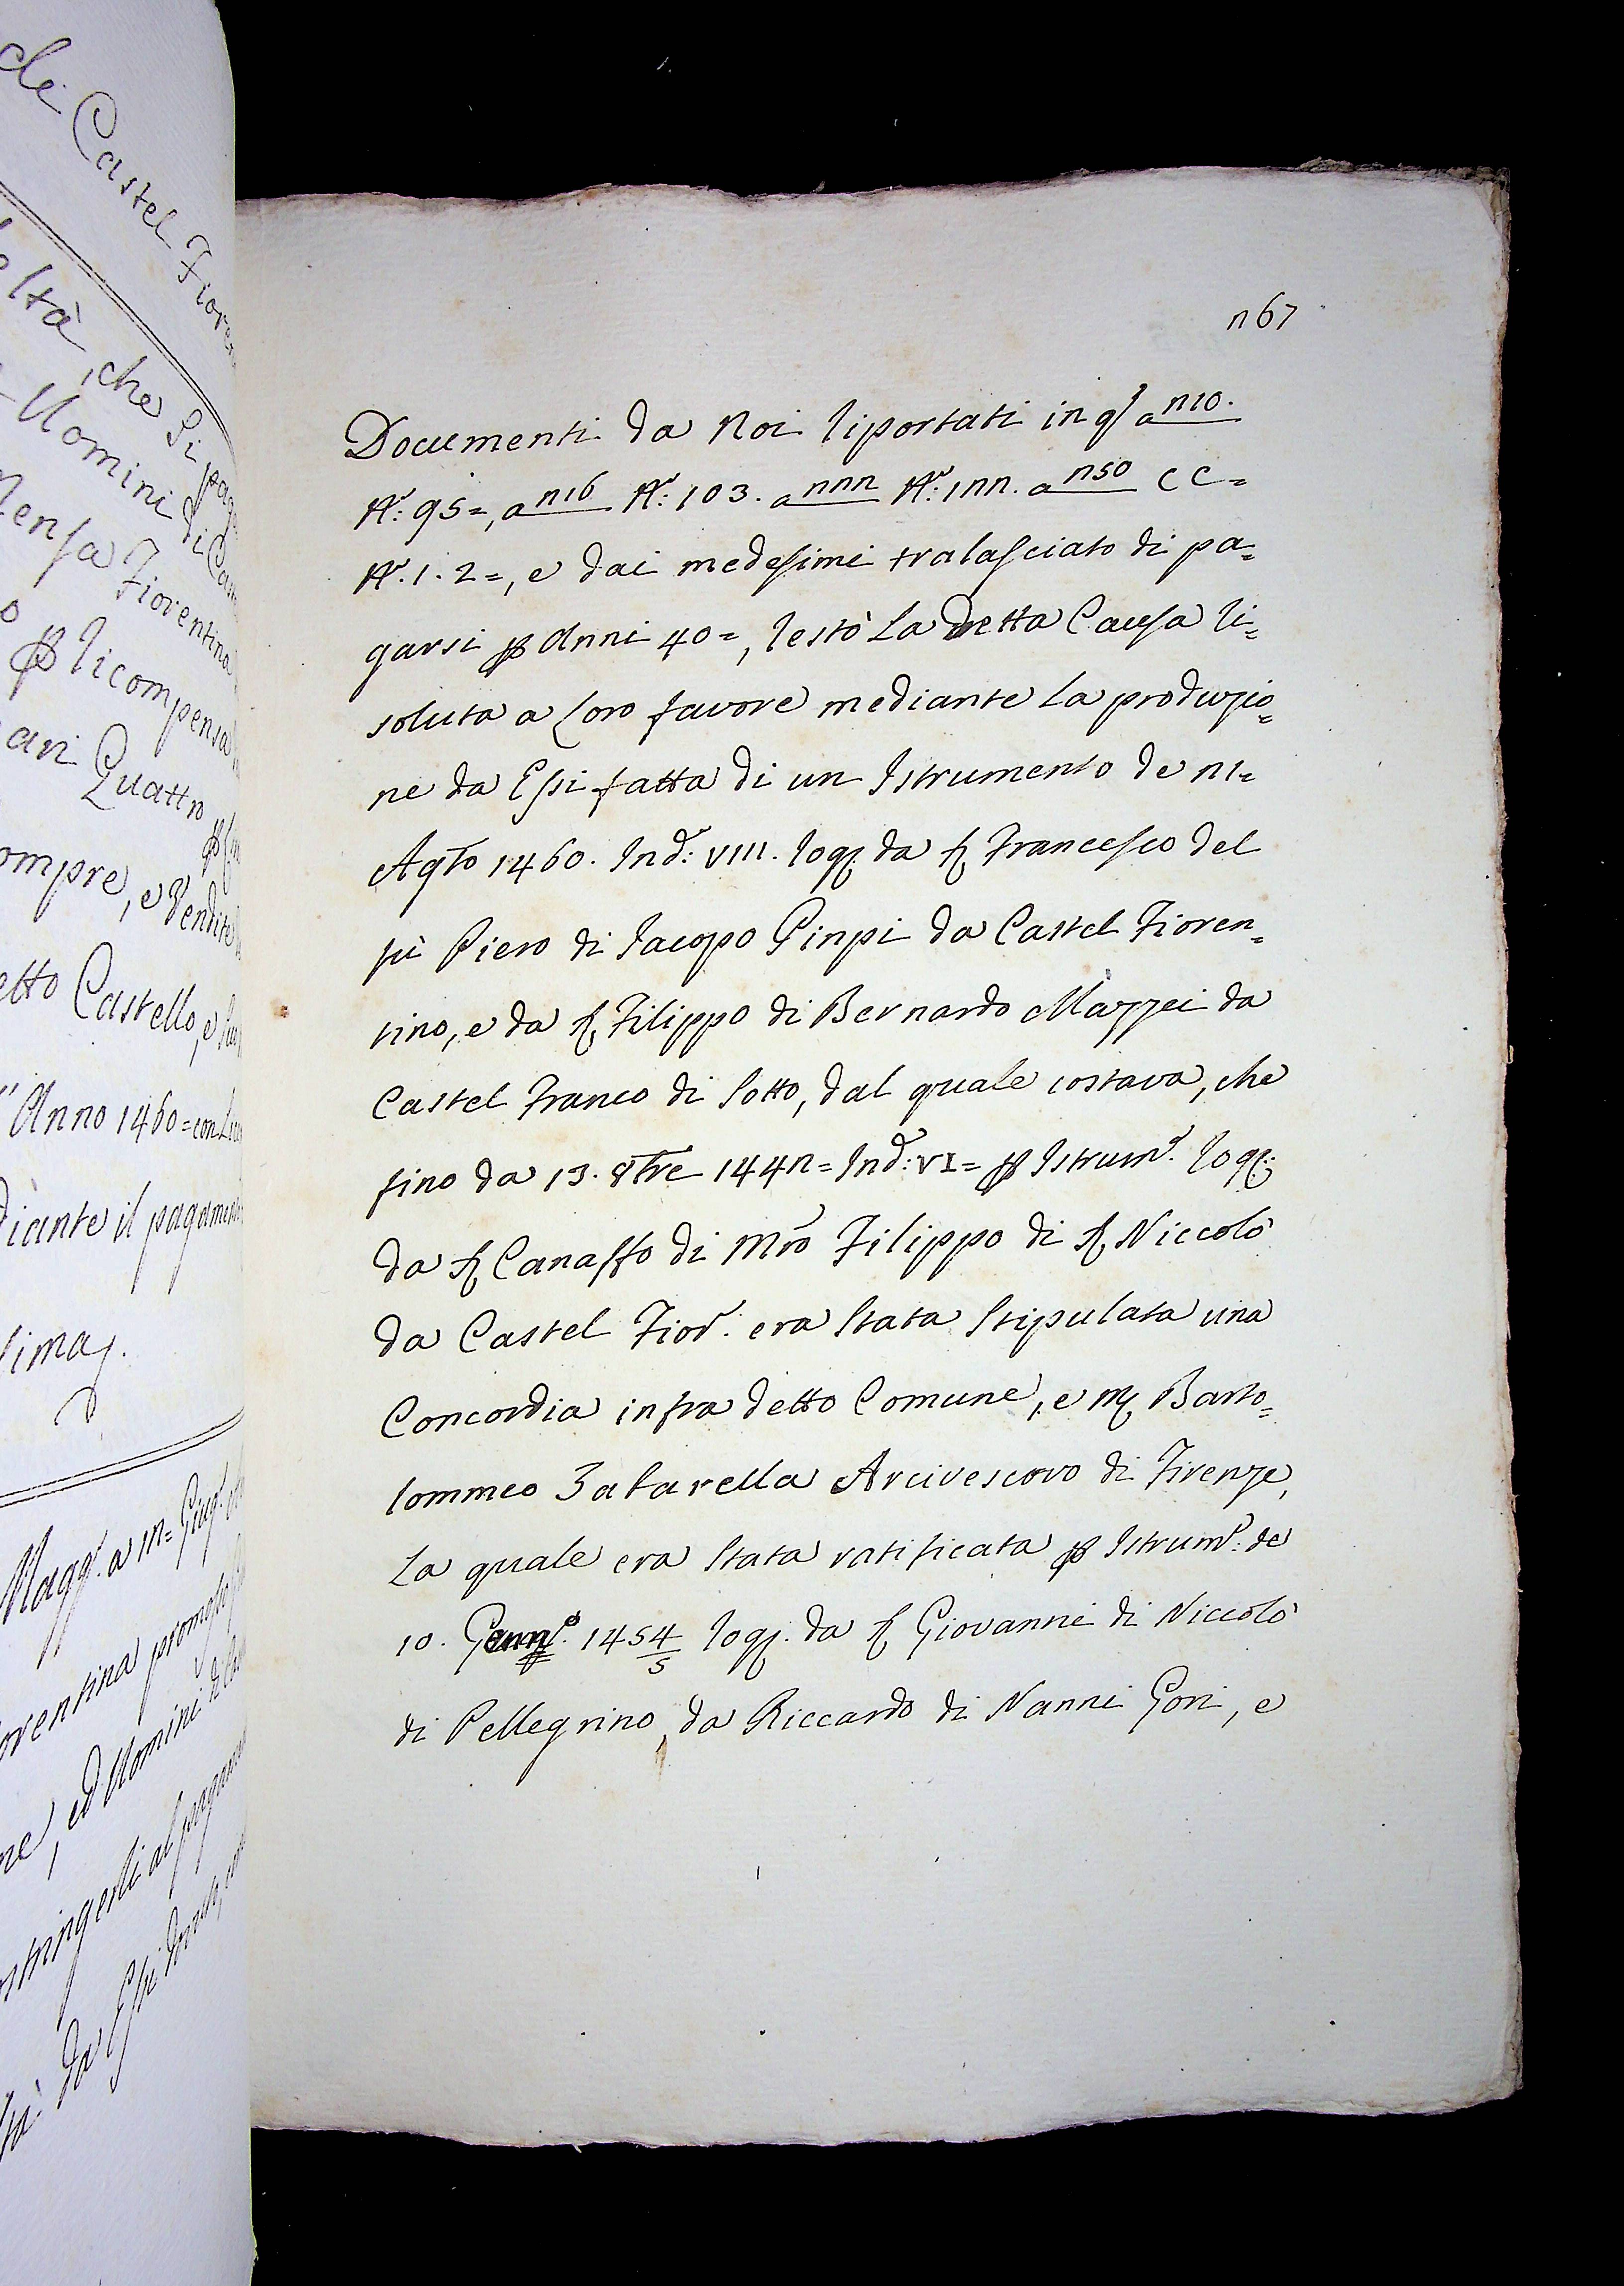 de Castel Fioren
eltà, che Si pag
Uomini di Cas
Mensa Fiorentina
o p licompensa
ari Quattro p
ompre, e Vendite
etto Castello, e
Anno 1460=con
diante il pagamen
sima
Magg. a 1n= Giug.
orentina promossa
ne, ed Uomini di
stringerli al pagam
da Essi
n67
Documenti da Noi riportati in q. a n10.
N: 95=, a n16 N: 103. a nnn N: 1nn. a n50 CC=
N. 1. 2=, e dai medesimi tralasciato di pa=
garsi p Anni 40=, restò La detta Causa ri=
soluta a Loro favore mediante La produzio=
ne da Essi fatta di un Istrumento de n1=
Agto 1460. Ind: VIII. rog. da S. Francesco del
fù Piero di Iacopo Pinpi da Castel Fioren=
tino, e da S. Filippo di Bernardo Mazzei da
Castel Franco di Sotto, dal quale costava, che
fino da 13. 8bre 144n= Ind: VI= p Istrum. rog:
da S. Canasso di Mro Filippo di S. Niccolò
da Castel Fior. era Stata Stipulata una
Concordia infra detto Comune, e M. Barto=
lommeo Zabarella Arcivescovo di Firenze,
La quale era Stata ratificata p Istrum: de
10. Genn. 1454/5 rog. da S. Giovanni di Niccolò
di Pellegrino, da Riccardo di Nanni Gori, e